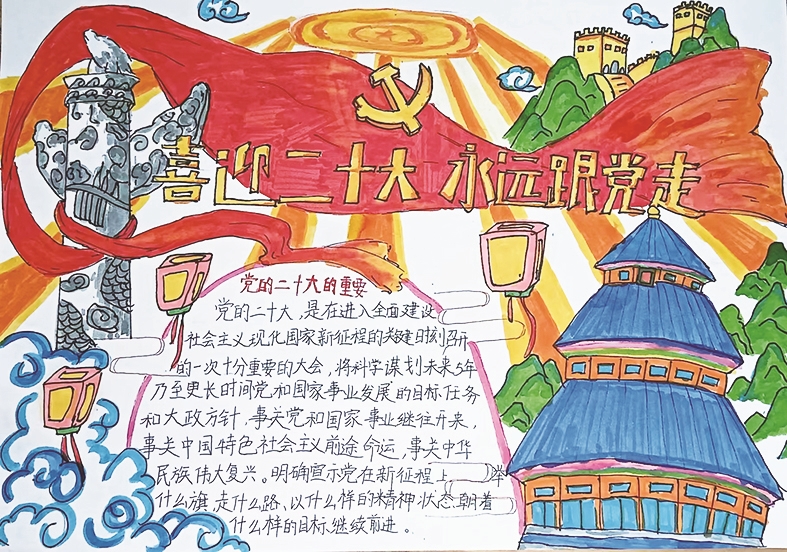 喜迎二十大 永远跟党走
党的二十大的重要
党的二十大,是在进入全面建设
社会主义现化国家新征程的关建时刻召开
的一次十分重要的大会,将科学谋划未来5年
乃至更长时间党和国家事业发展的目标任务
和大政方针,事关党和国家事业继往开来,
事关中国特色社会主义前途命运,事关中华
民族伟大复兴。明确宣示党在新征程上 举
什么旗,走什么路、以什么样的精神状态、朝着
什么样的目标继续前进。